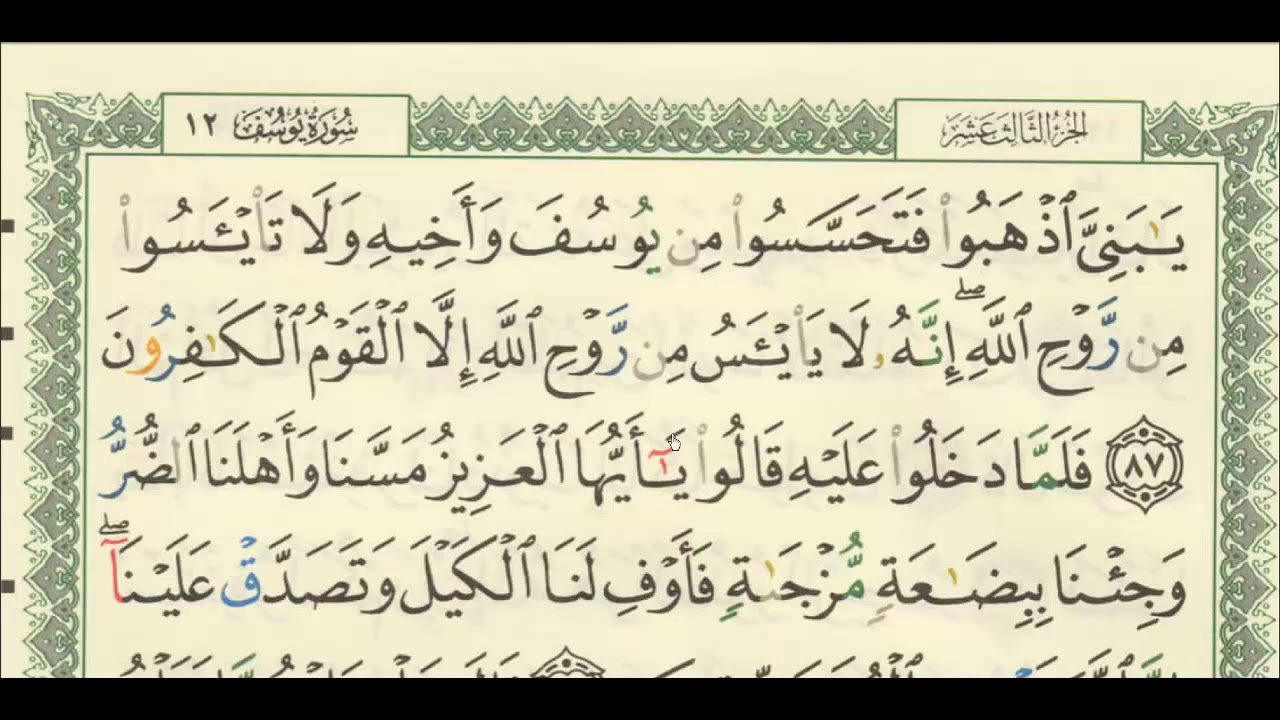 الجزء الثالث عشر
سورة يوسف ١٢
يَـٰبَنِىَّ ٱذۡهَبُوا۟ فَتَحَسَّسُوا۟ مِن يُوسُفَ وَأَخِيهِ وَلَا تَا۟يۡـَٔسُوا۟
مِن رَّوۡحِ ٱللَّهِۖ إِنَّهُۥ لَا يَا۟يۡـَٔسُ مِن رَّوۡحِ ٱللَّهِ إِلَّا ٱلۡقَوۡمُ ٱلۡكَـٰفِرُونَ
٨٧ فَلَمَّا دَخَلُوا۟ عَلَيۡهِ قَالُوا۟ يَـٰٓأَيُّهَا ٱلۡعَزِيزُ مَسَّنَا وَأَهۡلَنَا ٱلضُّرُّ
وَجِئۡنَا بِبِضَـٰعَةٍ مُّزۡجَىٰةٍ فَأَوۡفِ لَنَا ٱلۡكَيۡلَ وَتَصَدَّقۡ عَلَيۡنَآۖ